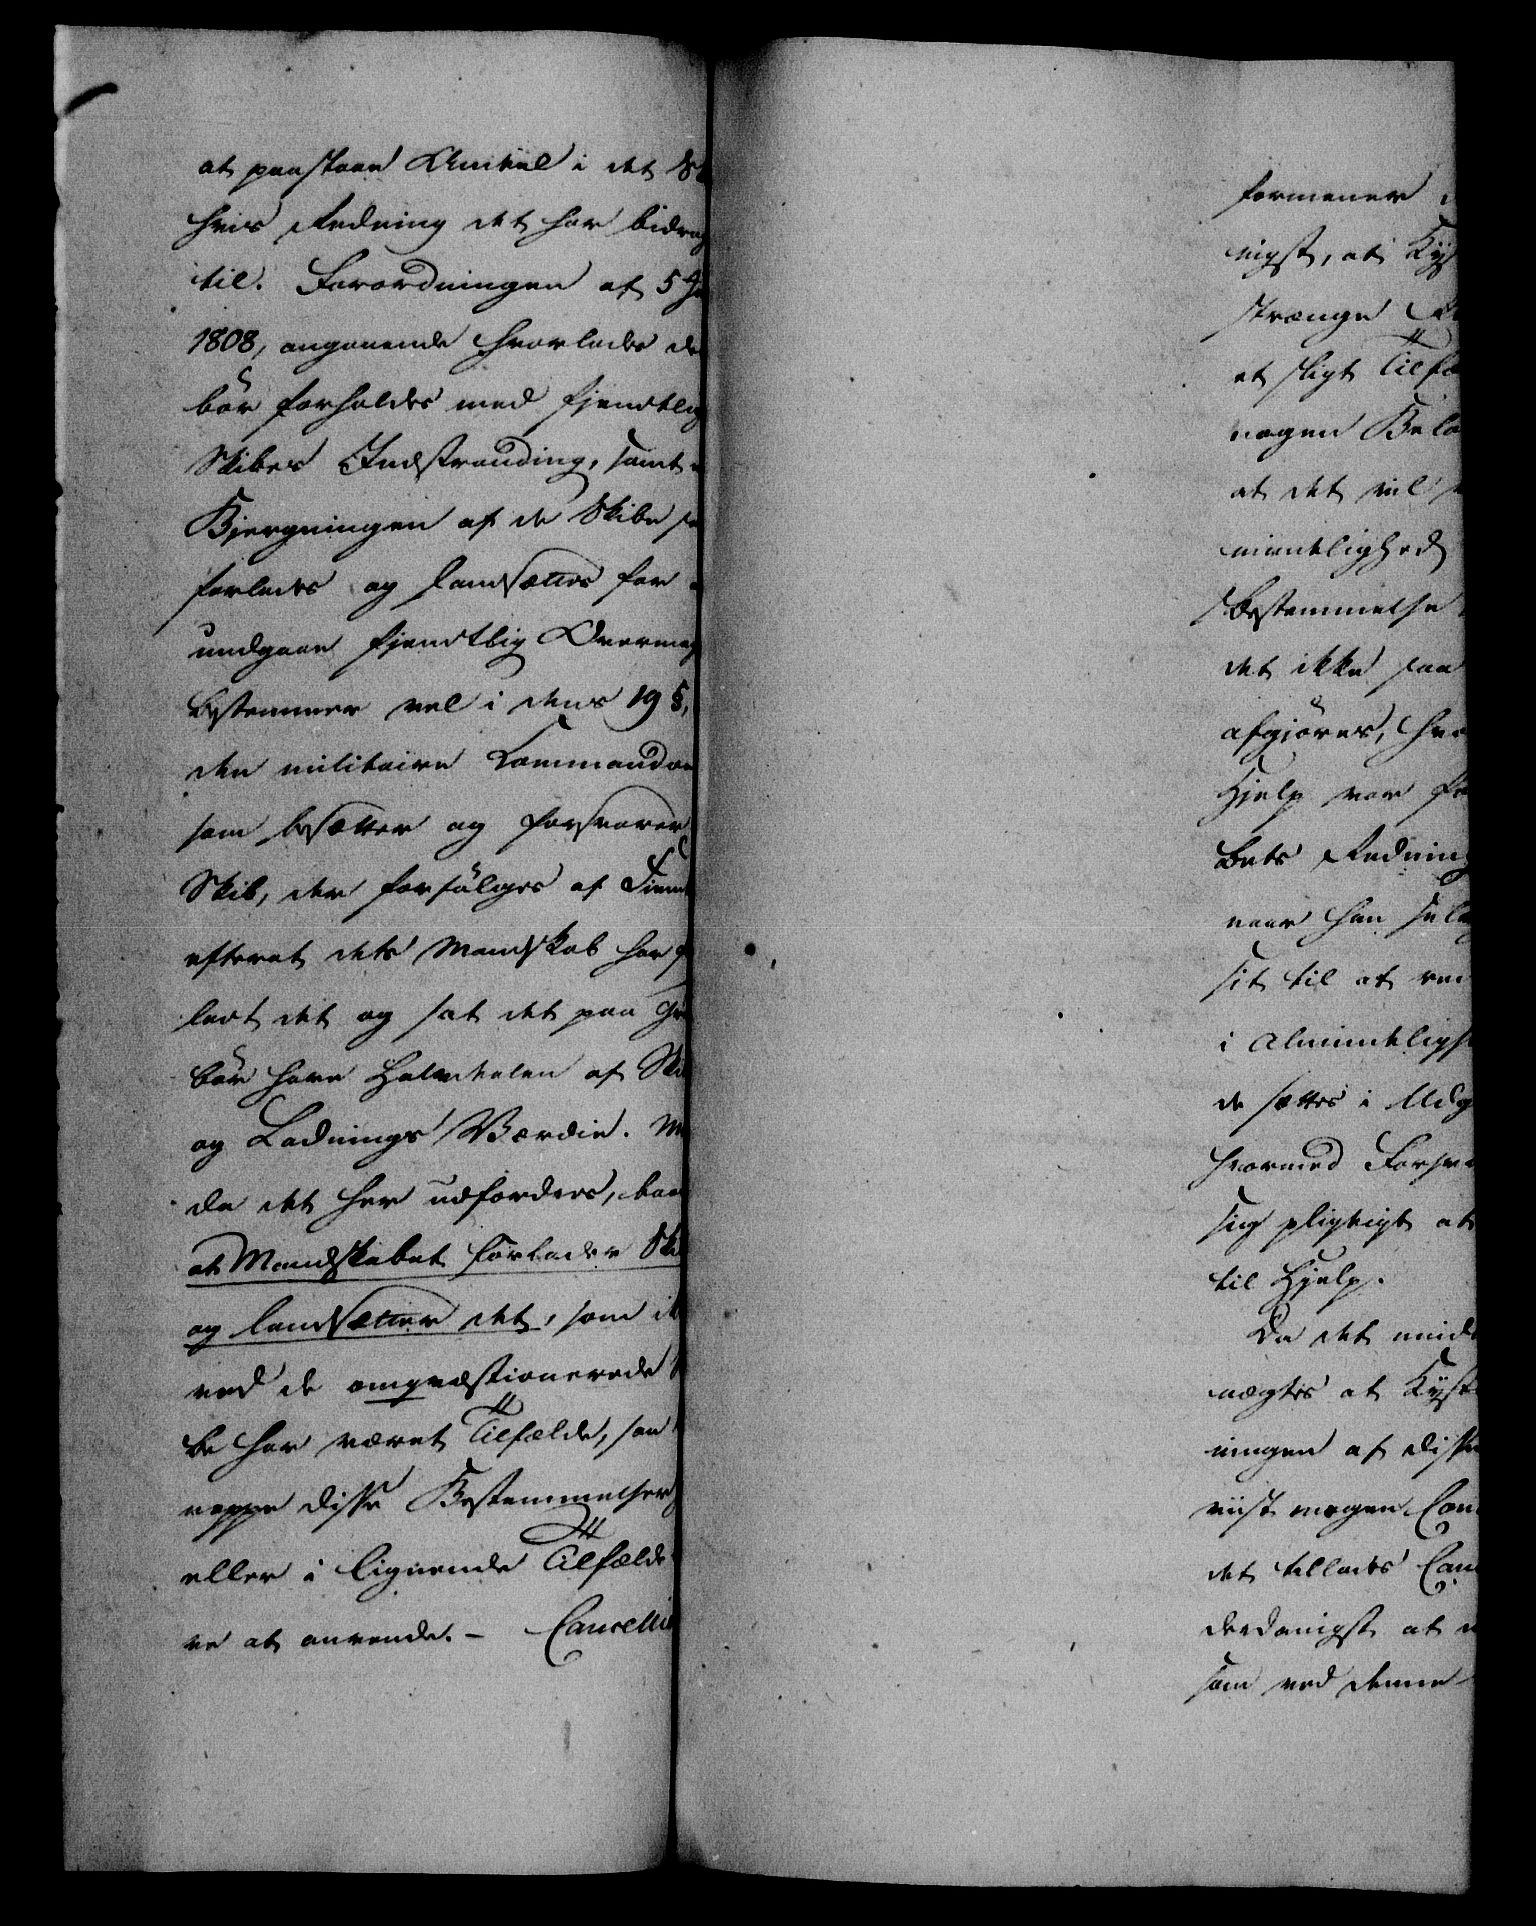 at paastaae Andeel i det
hvis Redning det har bidrag
til. Forordningen af 5
1808, angaaende hvorledes de
bör forholdes med fjendtlig
Skibes Indstranding, samt
Bjergningen af de Skibe
forlades og landsættes for
undgaae fjendtlig Overmag
bestemmer vel i dens 19 §,
den militaire Commando
som besætter og forsvarer
Skib, der forfölges af Fiend
efterat dets Mandskab har
ladt det og sat det paa Gr
bör have Halvdelen af Ski
og Ladnings Værdie. M
da det her udfordres, baa
at Mandskabet forlader Ski
og landsætter det, som ik
ved de omqvæstionerede
be har været Tilfælde, saa
neppe disse Bestemmelser
eller i lignende Tilfælde
re at anvende. – Cancellie
formener
nigst, at Kys
strænge
et sligt Tilfæ
nogen Belö
at det vil
mindelighed
bestemmelse
det ikke saa
afgjöres, hvo
Hjelp var
bets Redning
naar han
sit til at red
i Almindeligh
de sættes i Udg
hvormed Forsva
sig pligtigt at
til Hjelp.
Da det imid
nægtes at Kyst
ningen af disse
viist megen Con
det tillades Can
derdanigst at
som ved denne